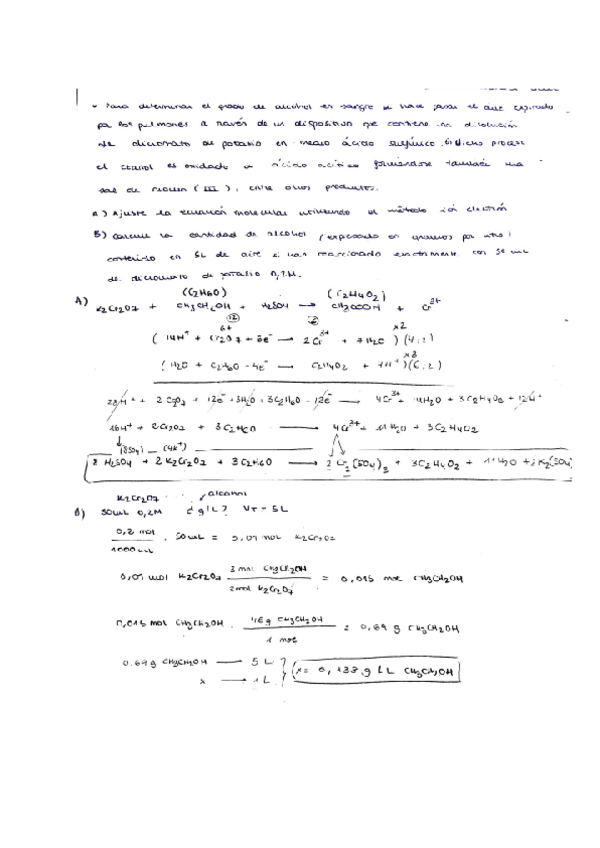 - Para determinar el grado de alcohol en sangre se hace pasar el aire expirado
por los pulmones a través de un dispositivo que contiene una disolución
de dicromato de potasio en medio ácido sulfúrico. En dicho proceso
el etanol es oxidado a ácido acético formándose también una
sal de cromo (III), entre otros productos.
a) Ajuste la ecuación molecular utilizando el método ión electrón
b) Calcule la cantidad de alcohol (expresado en gramos por litro)
contenido en 5L de aire si han reaccionado exactamente con 50 mL
de dicromato de potasio 0,2 M.
(C2H6O) (C2H4O2)
A) K2Cr2O7 + CH3CH2OH + H2SO4 → CH3COOH + Cr3+
(14H+ + Cr2O7 + 6e- → 2Cr3+ + 7H2O) x2 (4:2)
(H2O + C2H6O - 4e- → C2H4O2 + 4H+) x3 (6:2)
28H+ + 2Cr2O7 + 12e- + 3H2O + 3C2H6O - 12e- → 4Cr3+ + 14H2O + 3C2H4O2 + 12H+
16H+ + 2Cr2O7 + 3C2H6O → 4Cr3+ + 11H2O + 3C2H4O2
(8SO4) (4K+)
8 H2SO4 + 2K2Cr2O7 + 3C2H6O → 2 Cr2(SO4)3 + 3C2H4O2 + 11H2O + 2K2(SO4)
K2Cr2O7 alcohol
B) 50mL 0,2M ¿g/L? VT = 5L
0,2 mol / 1000mL · 50mL = 0,01 mol K2Cr2O7
0,01 mol K2Cr2O7 3 mol CH3CH2OH / 2mol K2Cr2O7 = 0,015 mol CH3CH2OH
0,015 mol CH3CH2OH · 46g CH3CH2OH / 1 mol = 0,69 g CH3CH2OH
0,69 g CH3CH2OH → 5L
x → 1L } x = 0,138 g/L CH3CH2OH